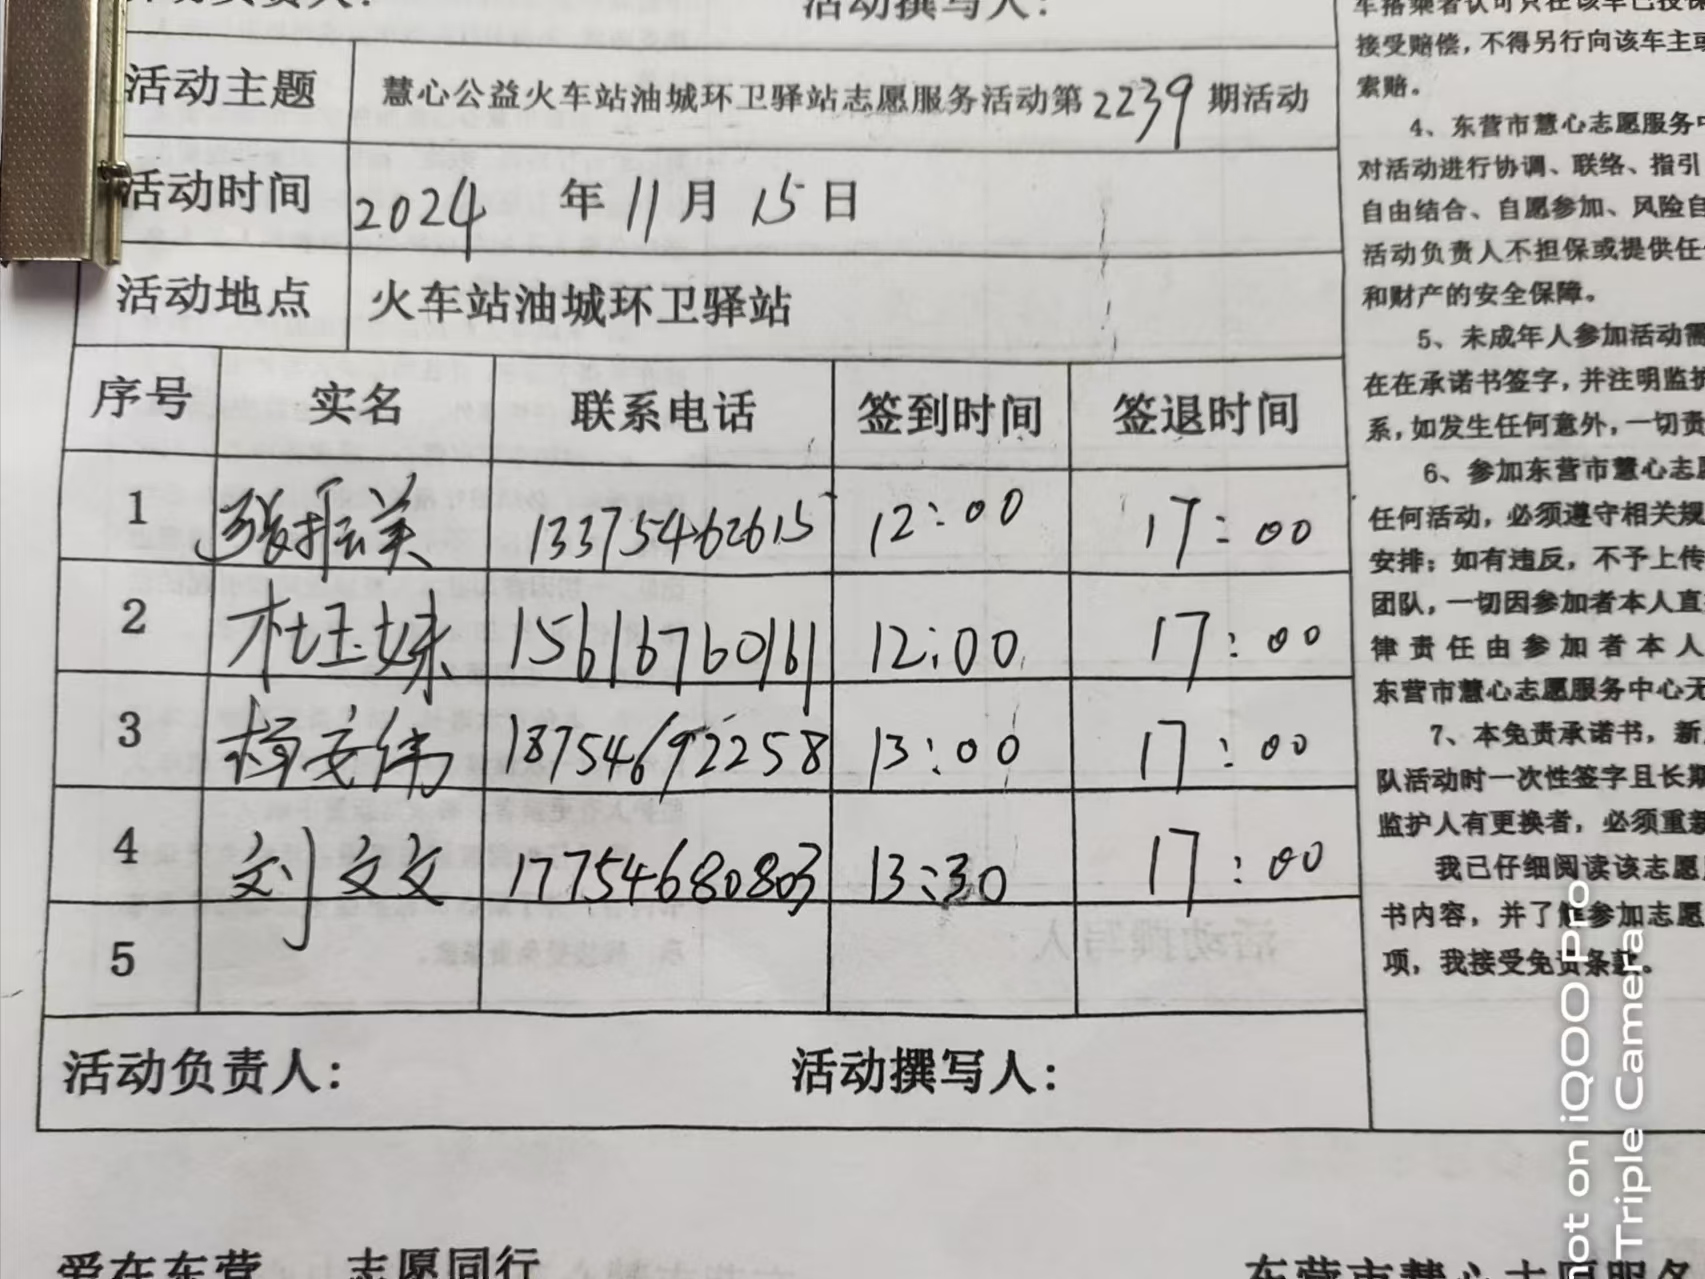 活动撰写人：
活动主题 慧心公益火车站油城环卫驿站志愿服务活动第2239期活动
活动时间 2024 年 11 月 15 日
活动地点 火车站油城环卫驿站
序号 实名 联系电话 签到时间 签退时间
1 13375462615 12:00 17:00
2 杜玉妹 15616760161 12:00 17:00
3 杨安伟 18754692258 13:00 17:00
4 刘文文 17754680803 13:30 17:00
5
活动负责人： 活动撰写人：
接受赔偿，不得另行向该车主或
索赔。
4、东营市慧心志愿服务中
对活动进行协调、联络、指引
自由结合、自愿参加、风险自
活动负责人不担保或提供任
和财产的安全保障。
5、未成年人参加活动需
在在承诺书签字，并注明监护
系，如发生任何意外，一切责
6、参加东营市慧心志愿
任何活动，必须遵守相关规
安排；如有违反，不予上传
团队，一切因参加者本人直
律责任由参加者本人
东营市慧心志愿服务中心无
7、本免责承诺书，新
队活动时一次性签字且长期
监护人有更换者，必须重新
我已仔细阅读该志愿
书内容，并了解参加志愿
项，我接受免责条款。
爱在东营 志愿同行
东营市慧心志愿服务
not on iQOO Pro
Triple Camera